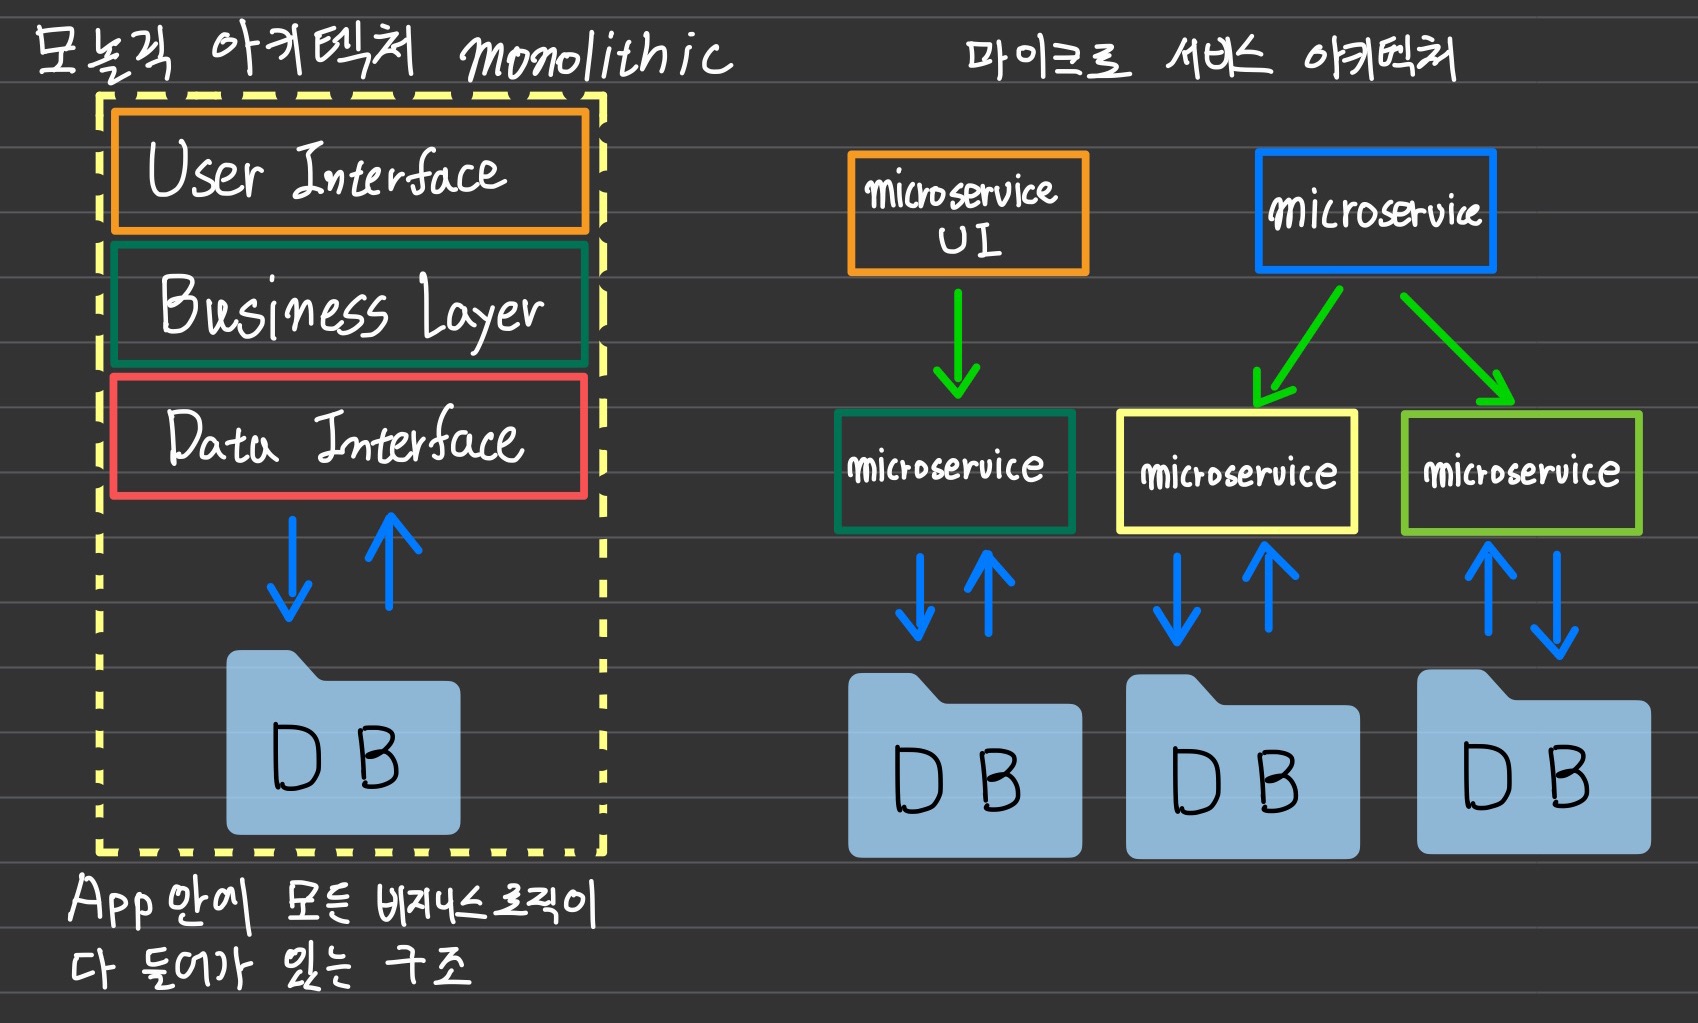 모놀릭 아키텍처 monolithic
User Interface
Business Layer
Data Interface
DB
App안에 모든 비지니스로직이
다 들어가 있는 구조
마이크로 서비스 아키텍처
microservice
UI
microservice
microservice
microservice
microservice
DB
DB
DB